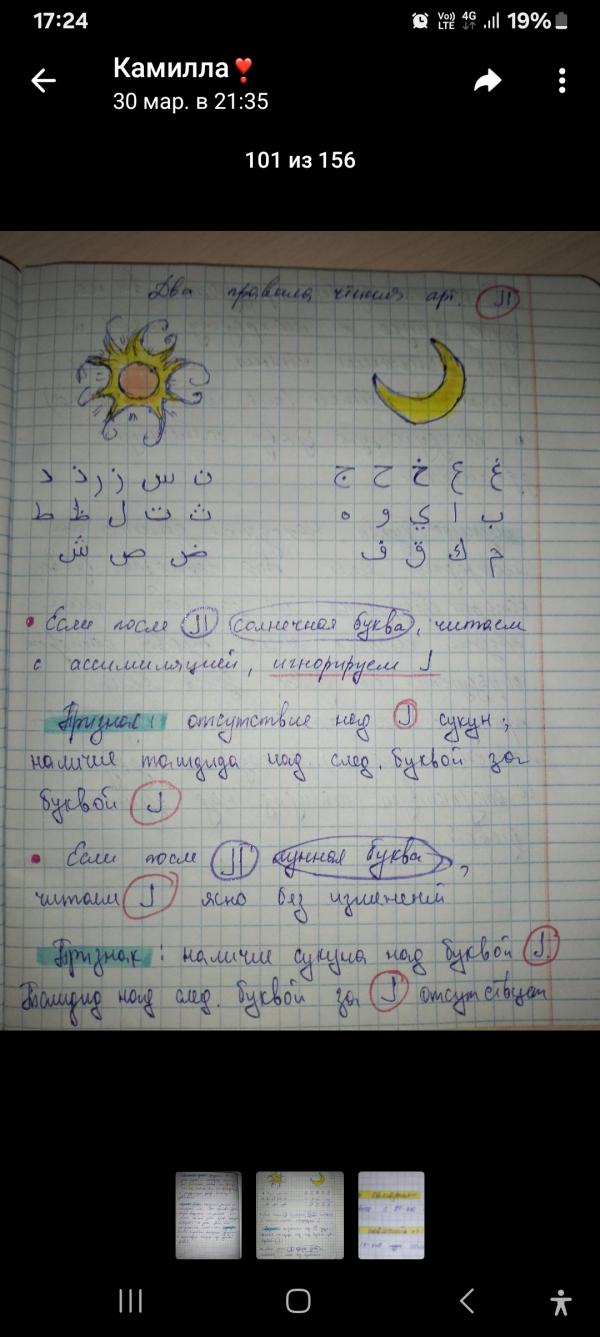 17:24
Vo)) LTE 4G 19%
Камилла❣️
30 мар. в 21:35
101 из 156
Два правила чтения арт. ال
ن س ز ر ذ د
غ ع خ ح ج
ث ت ل ظ ط
ب ا ي و ه
ض ص ش
م ك ق ف
• Если после ال солнечная буква, читаем
с ассимиляцией, игнорируем ل
Признак: отсутствие над ل сукун;
наличие ташдида над след. буквой за
буквой ل
• Если после ال лунная буква,
читаем ل ясно без изменений
Признак: наличие сукуна над буквой ل.
Ташдид над след. буквой за ل отсутствует